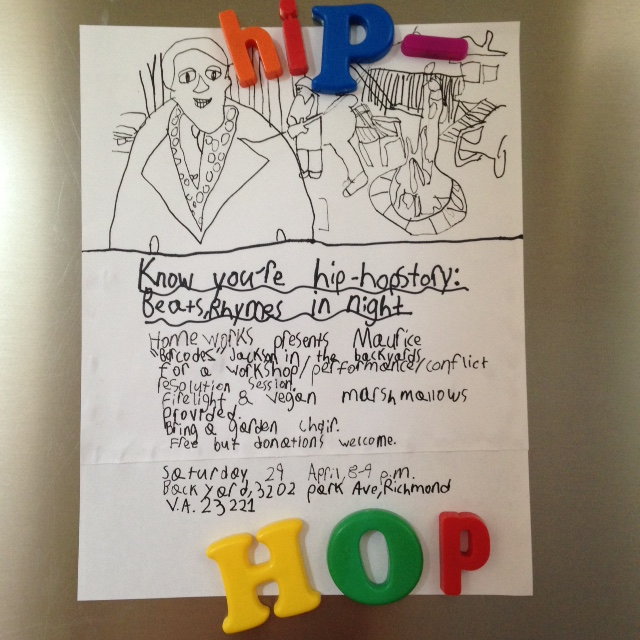 hip-
Know you-re hip-hopstory:
Beats, Rhymes in night
Home works presents Maurice
"Barcodes" Jackson in the backyards
for a workshop/performance/conflict
resolution session.
Firelight & vegan marshmallows
provided.
Bring a garden chair.
Free but donations welcome.
Saturday 29 April, 8-9 p.m.
Back yard, 3202 park Ave, Richmond
V.A. 23221
HOP